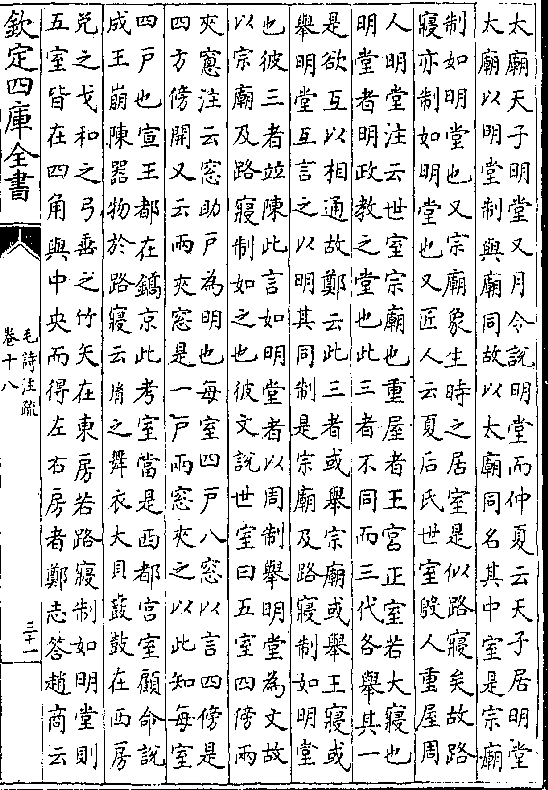 太廟天子明堂又月令說明堂而仲夏云天子居明堂
太廟以明堂制與廟同故以太廟同名其中室是宗廟
制如明堂也又宗廟象生時之居室是似路寢矣故路
寢亦制如明堂也又匠人云夏后氏世室殷人重屋周
人明堂注云世室宗廟也重屋者王宮正室若大寢也
明堂者明政教之堂也此三者不同而三代各舉其一
是欲互以相通故鄭云此三者或舉宗廟或舉王寢或
舉明堂互言之以明其同制是宗廟及路寢制如明堂
也彼三者並陳此言如明堂者以周制舉明堂為文故
以宗廟及路寢制如之也彼文說世室曰五室四傍兩
夾窻注云窓助戶為明也每室四戶八窓以言四傍是
四方傍開又云兩夾窓是一戶兩窓夾之以此知每室
四戶也宣王都在鎬京此考室當是西都宮室顧命說
成王崩陳器物於路寢云𦙍之舞衣大貝鼖鼓在西房
兌之戈和之弓垂之竹矢在東房若路寢制如明堂則
五室皆在四角與中央而得左右房者鄭志答趙商云
欽定四庫全書
毛詩注疏
卷十八
三十一